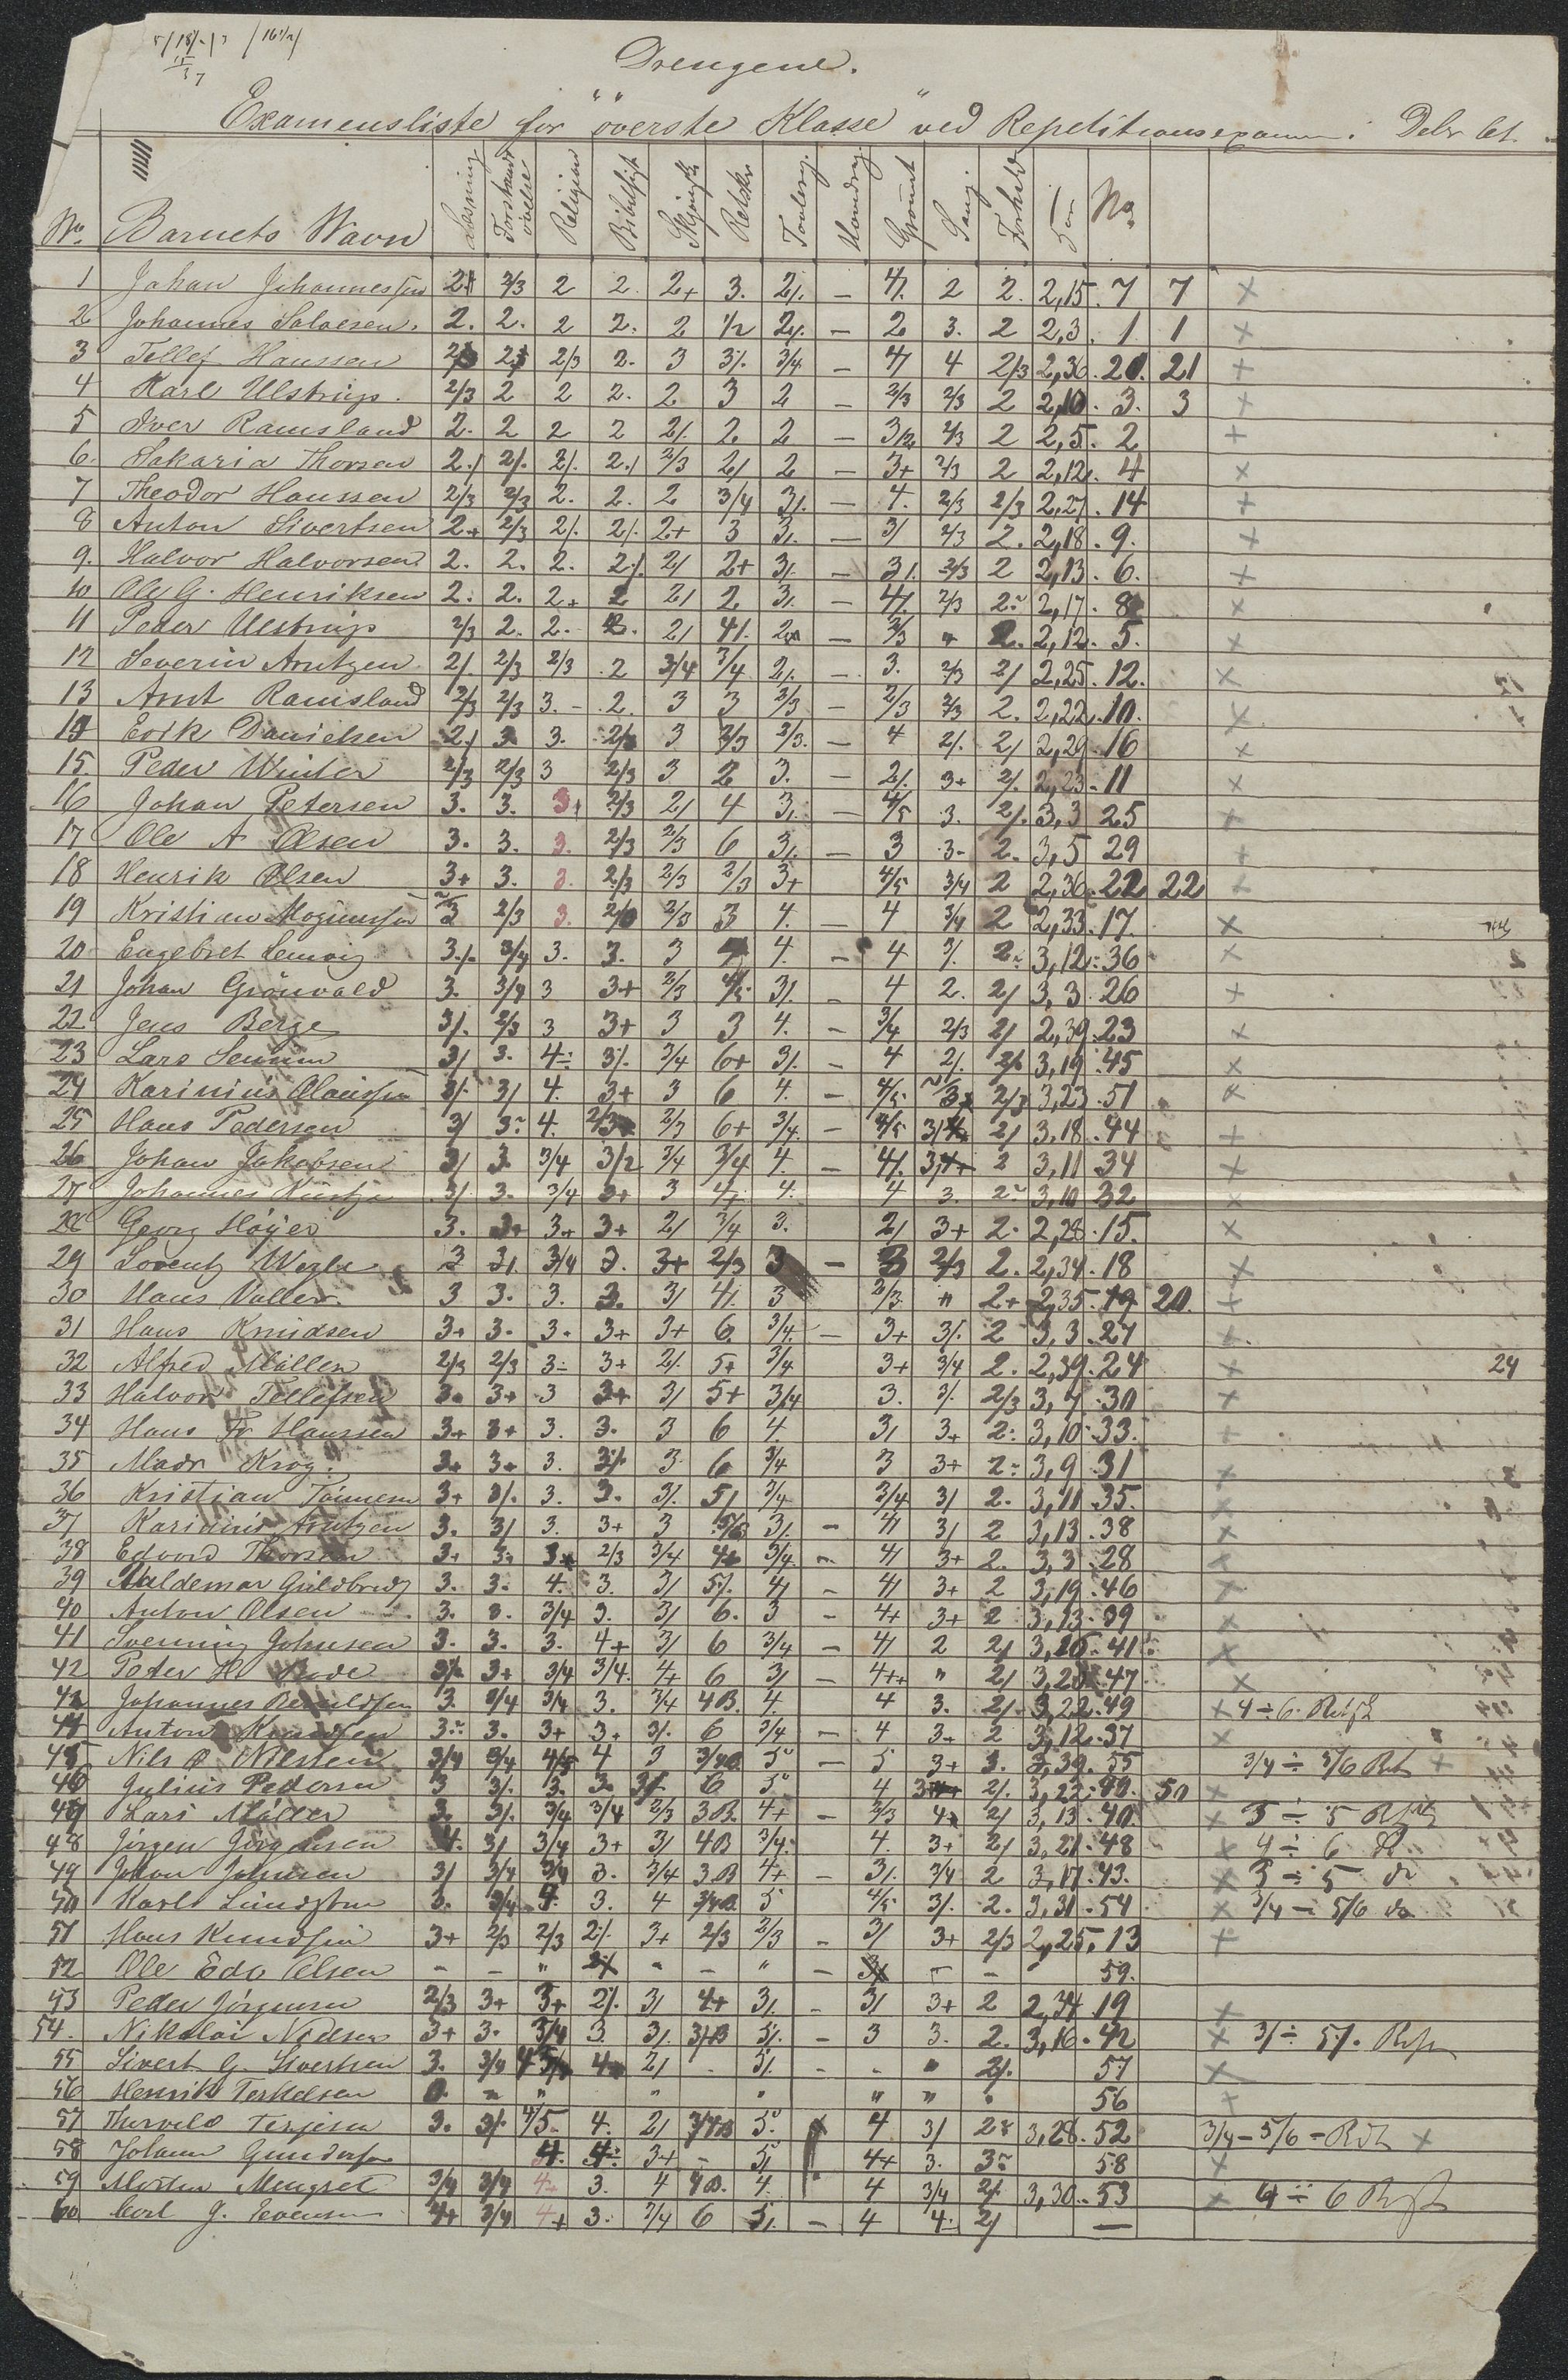 Drengene.
Examensliste for "överste Klasse" ved Repetitionsexamen. Debr 61.
No. Barnets Navn Læsning Forstands övelse Religion Bibelhist Skjönsk Retskr Tavlereg. Hovedreg. Sang. Forhold No.
1 Johan Johannessen 2/3 2 2 2+ 3. 2/. — 4/. 2 2. 2,15. 7 7 ×
2 Johannes Salvesen. 2. 2. 2 2. 2 1/2 2/. — 2 3. 2 2,3. 1 1 ×
3 Tellef Hanssen 2/3 2. 3 3/. 3/4 — 4/ 4 2/3 2,36. 20. 21 +
4 Karl Ulstrup. 2/3 2 2 2. 2 3 2 — 2/3 2/3 2 2,10. 3. 3 +
5 Iver Ramsland 2. 2 2 2 2/. 2 2 — 3/2 2/3 2 2,5. 2 +
6. Sakaria Thorsen 2./ 2/. 2/. 2./ 2/3 2/ 2 — 3+ 2/3 2 2,12. 4 ×
7 Theodor Hanssen 2/3 2/3 2. 2. 2 3/4 3/. — 4. 2/3 2/3 2,27. 14 +
8 Anton Sivertsen 2+ 2/3 2/. 2/. 2+ 3 3/. — 3/ 2/3 2. 2,18. 9. +
9. Halvor Halvorsen 2. 2. 2. 2./ 2/ 2+ 3/. — 3/. 2/3 2 2,13. 6. +
10 Ole G. Henriksen 2. 2. 2+ 2 2/ 2 3/. — 4/. 2/3 2. 2,17. 8 ×
11 Peder Ulstrup 2/3 2. 2. 2/ 4/. — 2/3 " 2. 2,12. 5. ×
12 Severin Arntzen 2/. 2/3 2/3 2 3/4 3/4 2/. — 3. 2/3 2/ 2,25. 12. ×
13 Arnt Ramsland 2/3 2/3 3. 2. 3 3 2/3 — 2/3 2/3 2. 2,22. 10. ×
14 Erik Danielsen 2./ 3 3. 3 2/3 2/3. — 4 2/. 2/ 2,29. 16 ×
15. Peder Winter 2/3 2/3 3 2/3 3 2 3. — 2/. 3+ 2/. 2,23. 11 ×
16 Johan Petersen 3. 3. 3+ 2/3 2/ 4 3/. — 4/5 3. 2/. 3,3 25 +
17 Ole A Olsen 3. 3. 3. 2/3 2/3 6 3/. — 3 3. 2. 3,5 29 +
18 Henrik Olsen 3+ 3. 3. 2/3 2/3 2/3 3+ 4/5 3/4 2 2,36. 22 22 +
19 Kristian 3 2/3 3. 2/3 3 4. — 4 3/4 2 2,33. 17. ×
20 Engebret 3./. 3/4 3. 3. 3 4. — 4 2. 3,12. 36 ×
21 Johan Grönvald 3. 3/4 3 3+ 2/3 3/. — 4 2. 2/ 3,3. 26 +
22 Jens Berge 3/. 2/3 3 3+ 3 3 4. — 3/4 2/3 2/ 2,39. 23 ×
23 Lars 3/ 3. 4÷ 3/. 3/4 6+ 3/. — 4 2/. 3,19. 45 ×
24 Karinius 3/. 3/ 4. 3+ 3 6 4. — 4/5 2/3 3,23. 51 ×
25 Hans Pedersen 3/ 3. 4. 2/3 6+ 3/4. — 4/5 2/ 3,18. 44 +
26 Johan Jakobsen 3/ 3 3/4 3/2 3/4 3/4 4. — 4/. 2 3,11 34 ×
27 Johannes 3/ 3. 3/4 3+ 3 4. 4 3. 2. 3,10 32 ×
28 Georg Höyer 3. 3+ 3+ 3+ 2/ 3/4 3. 2/ 3+ 2. 2,28. 15. ×
29 3 3/. 3/4 3. 3+ 2/3 3 — 3 2/3 2. 2,34. 18 ×
30 Hans 3 3. 3. 3. 3/ 4/. 3 2/3. " 2+ 2,35. 19 20. +
31 Hans Knudsen 3+ 3. 3. 3+ 3+ 6. 3/4. — 3+ 3/. 2 3,3. 27 +
32 Alfred Möller 2/3 2/3 3÷ 3+ 2/. 5+ 3/4 3+ 3/4 2. 2,39. 24 × 24
33 Halvor Tellefsen 3. 3+ 3 3+ 3/ 5+ 3/4 3. 3/. 2/3 3,7. 30 ×
34 Hans Fr Hanssen 3+ 3+ 3. 3. 3 6 4. 3/ 3+ 2. 3,10. 33. +
35 Mads Krog. 3+ 3+ 3. 3/. 3 6 3/4 3 3+ 2. 3,9. 31 +
36 Kristian Tönnesen 3+ 3/. 3. 3. 3/. 5/ 3/4 3/4 3/ 2. 3,11. 35. ×
37 Karinius Arntzen 3. 3/ 3. 3+ 3 5/6 3/. — 4/ 3/ 2 3,13. 38 ×
38 Edvard Thorsen 3+ 3. 3+ 2/3 3/4 4+ 3/4. — 4/ 3+ 2. 3,3. 28 ×
39 Valdemar 3. 3. 4. 3. 3/ 5/. 4/ — 4/ 3+ 2 3,19. 46 ×
40 Anton Olsen 3. 3. 3/4 3. 3/ 6. 3 — 4+ 3+ 2 3,13. 39 ×
41 Svenning Johnsen 3. 3. 3. 4+ 3/ 6 3/4 — 4/ 2 2/ 41 ×
42 Peter H. 3+ 3/4 3/4. 4+ 6 3/ — 4++ " 2/ 3,20. 47 ×
43 Johannes 3. 3/4 3/4 3. 3/4 4B. 4. 4 3. 2/. 3,22. 49 × 4÷6
44 Anton Knudsen 3. 3. 3+ 3+ 3/. 6 3/4 — 4 3+ 2 3,12. 37 ×
45 Nils Nilssen 3/4 3/4 4/5 4 3 3/4B 5 — 5 3+ 3. 3,39. 55 3/4÷5/6 +
46 Julius Pedersen 3 3/. 3. 3. 6 5 4 2/. 3,22. 50 ×
47 Lars Möller 3. 3/. 3/4 3/4 2/3 3B. 4+ — 2/3 4+ 2/ 3,13. 40. × 3÷5
48 Jörgen Jörgensen 4. 3/ 3/4 3+ 3/ 4B 3/4. 4. 3+ 2/ 3,21. 48 × 4÷6 do
49 Johan Johnsen 3/ 3/4 3/4 3. 3/4 3B 4+ — 3/. 3/4 2 3,17. 43. × 3÷5 do
50 Karl 3. 3/4 4. 3. 4 3/4B 5 4/5 3/. 2. 3,31. 54 × 3/4÷5/6 do
51 Hans Knudsen 3+ 2/3 2/3 2/. 3+ 2/3 2/3 — 3/ 3+ 2/3 2,25. 13 +
52 Ole Edv Olsen — — " — — " — — — 59.
53 Peder Jörgensen 2/3 3+ 3+ 2/. 3/ 4+ 3/. — 3/ 3+ 2 2,34 19 ×
54. Nikolai Nielsen 3+ 3. 3/4 3 3/. 5/. — 3 3. 2. 3,16. 42 × 3/÷5/.
55 Sivert G. Sivertsen 3. 3/4 2/ - 5/. - - " 2/. 57 ×
56 Henrik Terkelsen " " " " " 56 +
57 Thorvald Terjesen 3. 3/. 4/5. 4. 2/ 3/4B 5. 4 3/ 2 3,28. 52 3/4–5/6 ×
58 Johan 4. 4÷ 3+ - 5/ 4+ 3. 3 58 ×
59 Morten 3/4 3/4 4+ 3. 4 4B. 4. 4 3/4 2/. 3,30. 53 × 4÷6
60 Carl J. 4+ 3/4 4+ 3. 3/4 6 5/. — 4 4÷ 2/ —